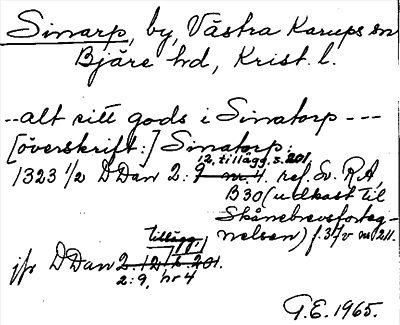 Sinarp, by, Västra Karups sn
Bjäre hd, Krist. l.
-- alt sitt gods i Sinatorp ---
[överskrift:] Sinatorp:
12, tillägg, s. 201
1323 1/2 DDan 2: 9 nr 4. ref. Sv. R.A,
B30 (udkast til
Skånebrevsforteg-
nelsen) f. 37v nr 211.
tillägg,
jfr DDan 2. 12, s. 201.
2: 9, nr 4
G.E. 1965.